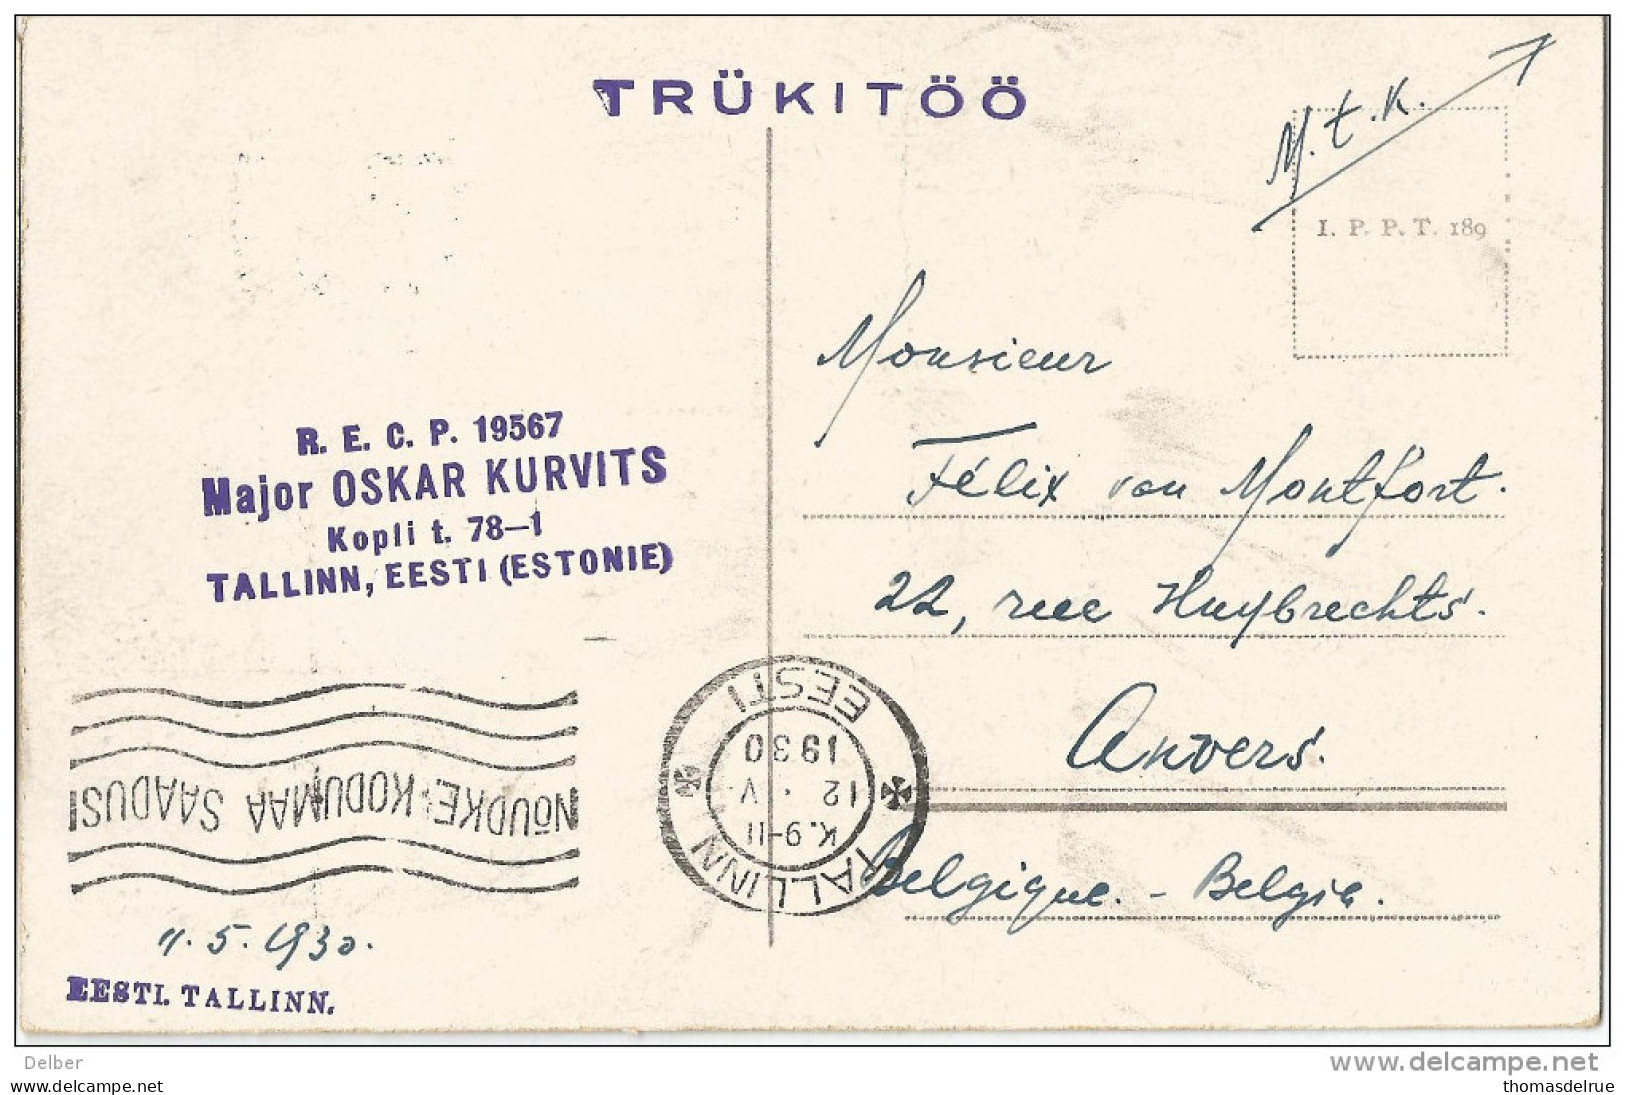 TRÜKITÖÖ
M.t.K.
I. P. P. T. 189
Monsieur
Félix van Montfort.
22, rue Huybrechts.
Anvers.
Belgique. - Belgia.
R. E. C. P. 19567
Major OSKAR KURVITS
Kopli t. 78–1
TALLINN, EESTI (ESTONIE)
NÕUDKE KODUMAA SAADUSI
TALLINN
K. 9-11
12. V.
1930
EESTI
11.5.1930.
EESTI. TALLINN.
Delber
delcampe.net
posted for sale on
thomasdelrue